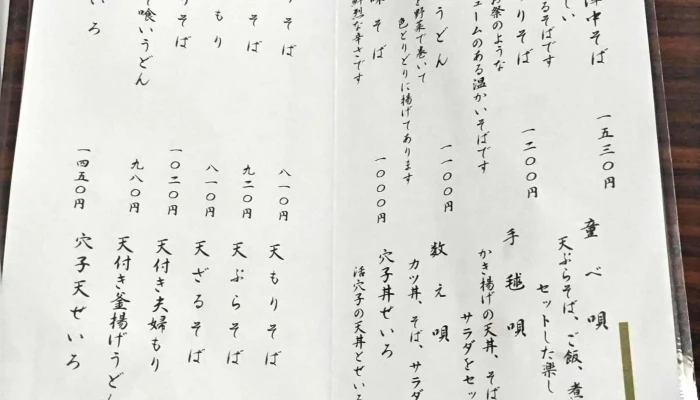 津中そば 一五三〇円
しい
るそばです
りそば 一二〇〇円
お祭のような
ュームのある温かいそばです
うどん 一一〇〇円
を野菜で巻いて
色とりどりに揚げてあります
味そば 一〇〇〇円
鮮烈な辛さです
童べ唄
天ぷらそば、ご飯、煮
セットした楽し
手毬唄
かき揚げの天丼、そば
サラダをセッ
数え唄
カツ丼、そば、サラダ
穴子丼せいろ
活穴子の天丼とせいろ
りそば 八一〇円
そば 九二〇円
もり 八一〇円
りそば 一〇二〇円
喰いうどん 九八〇円
いろ 一四五〇円
天もりそば
天ぷらそば
天ざるそば
天付き夫婦もり
天付き釜揚げうどん
穴子天せいろ